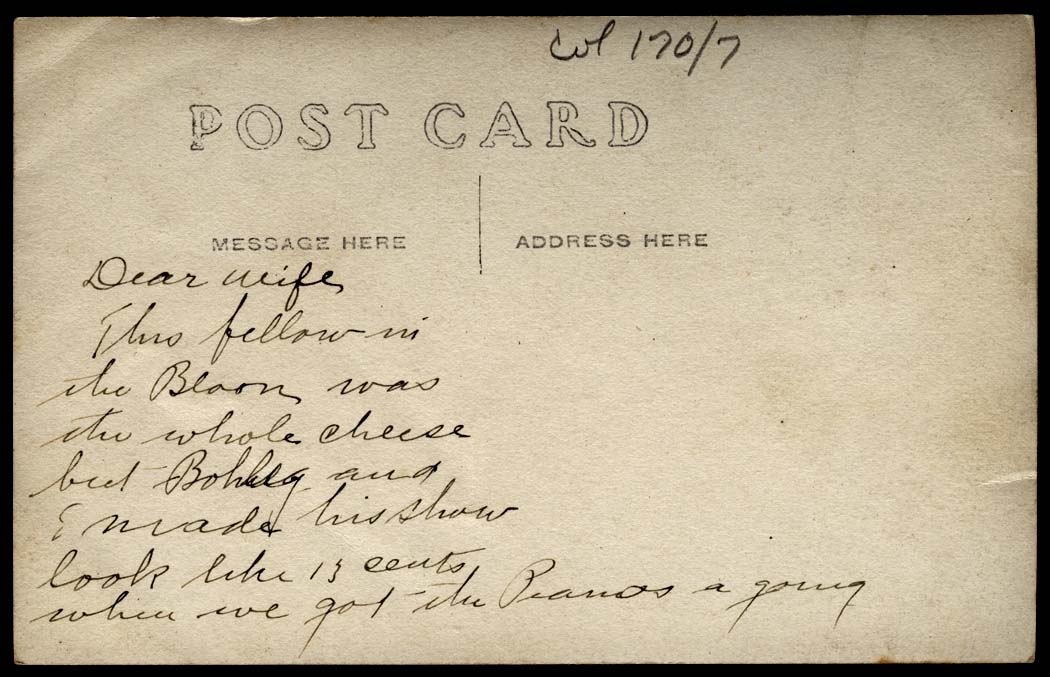 Col 170/7
POST CARD
MESSAGE HERE
ADDRESS HERE
Dear wife
This fellow in
the Bloon was
the whole cheese
but and
I made his show
look like 13 cents
when we got the Pianos a going